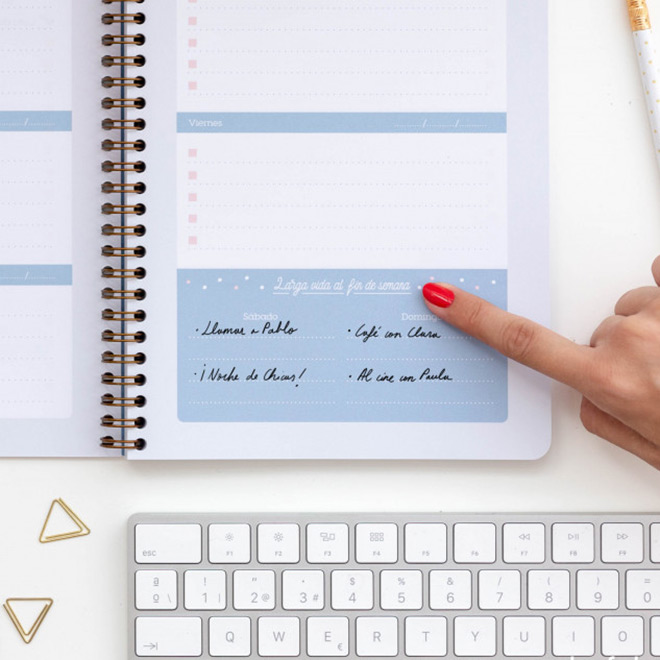 Viernes
Larga vida al fin de semana
Sábado
Domingo
· Llamar a Pablo
· Café con Clara
· ¡Noche de Chicas!
· Al cine con Paula
esc
F1
F2
F3
F4
F5
F6
F7
F8
F9
ª º \
! 1 |
" 2 @
· 3 #
$ 4
% 5
& 6
/ 7
( 8
) 9
= 0
Q
W
E €
R
T
Y
U
I
O
P